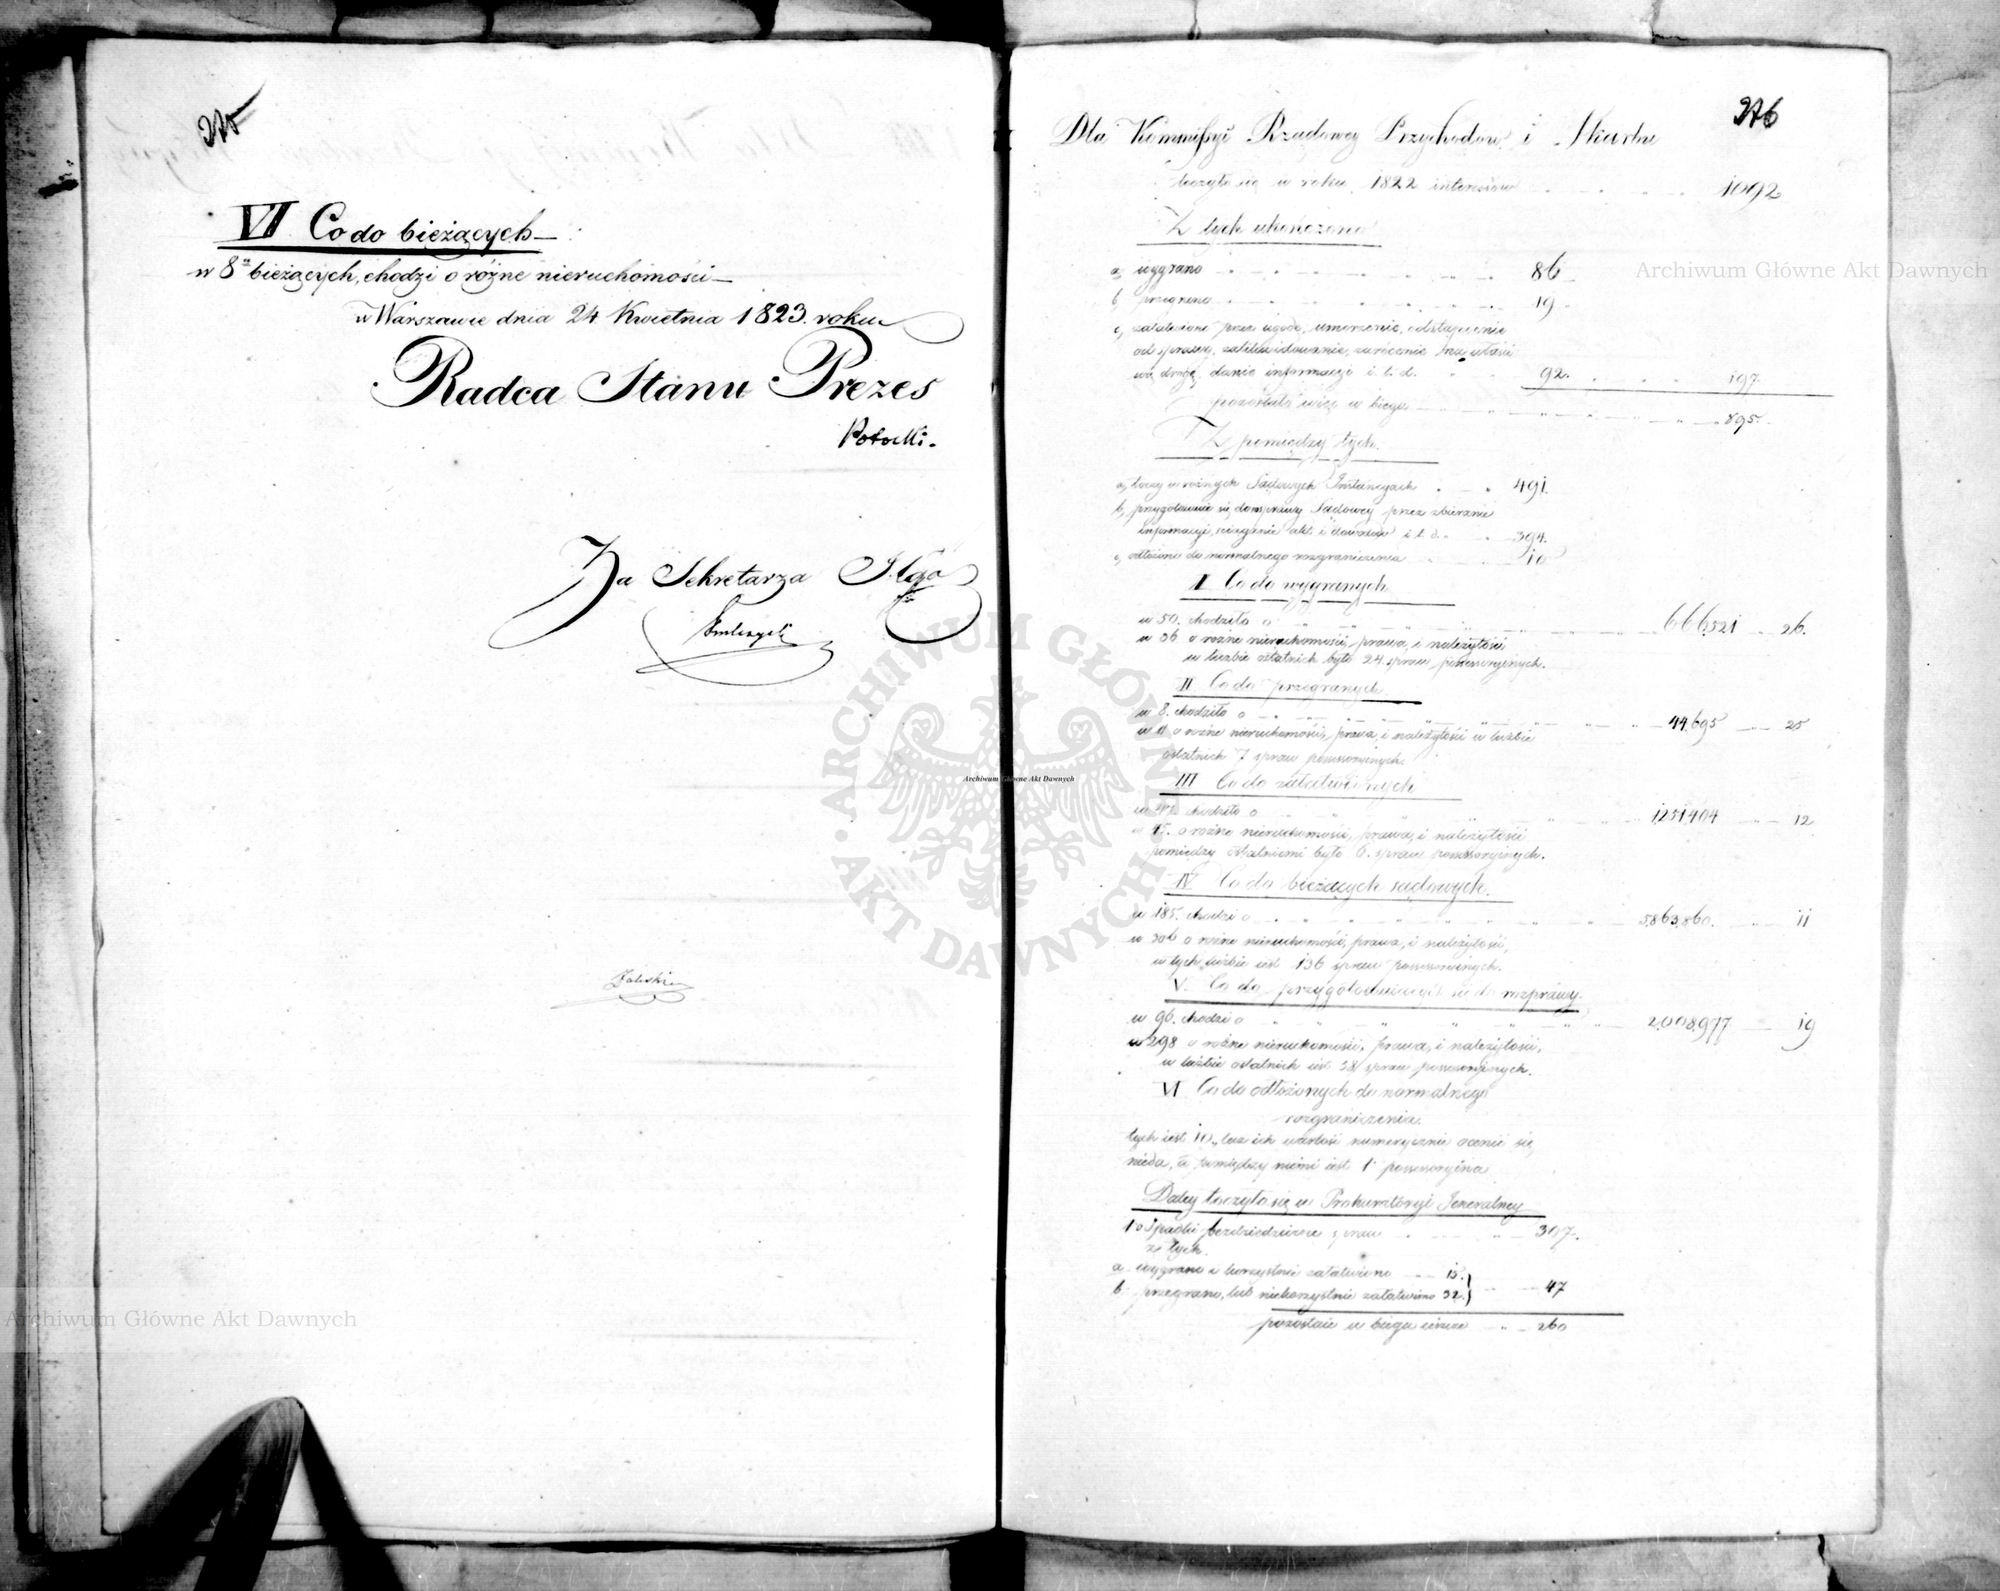 215
VI Co do bieżących
w 8u bieżących, chodzi o różne nieruchomości
w Warszawie dnia 24 Kwietnia 1823. roku
Radca Stanu Prezes
Potocki.
Za Sekretarza Jlgo
Zaleski
276
Dla Kommissyi Rządowey Przychodow i Skarbu
toczyło się w roku 1822 interesów 1092
Z tych ukończono
a, wygrano 86
b, przegrano 19
c, załatwiono przez ugodę, umorzenie, odstąpienie
od sprawy, zalikwidowanie, zwrócenie na właści
wą drogę, danie informacyi i. t. d. 92. 197.
pozostało więc w biegu 895.
Z pomiędzy tych.
a, toczy w różnych Sądowych Instancyach 491.
b, przygotowuie się do rozprawy Sądowey przez zbieranie
informacyi, ściąganie akt i dowodów i. t. d. 394.
c, odłożono do normalnego rozgraniczenia 10
I Co do wygranych
w 50. chodziło o 666,521 26.
w 36 o różne nieruchomości, prawa, i należytości
w liczbie ostatnich było 24. spraw possessoryinych.
II Co do przegranych
w 8. chodziło o 44,695 25
w 11 o różne nieruchomości, prawa, i należytości w liczbie
ostatnich 7 spraw possessoryinych.
III Co do załatwionych
w 47. chodziło o 1,251,404 12
w 45. o różne nieruchomości, prawa, i należytości
pomiędzy ostatniemi było 6. spraw possessoryinych.
IV Co do bieżących sądowych.
w 185. chodzi o 5,863,860. 11
w 306 o różne nieruchomości, prawa, i należytości,
w tych liczbie iest 136 spraw possessoryinych.
V. Co do przygotowuiących się do rozprawy.
w 96. chodzi o 2,008,977 19
w 298 o różne nieruchomości, prawa, i należytości,
w liczbie ostatnich iest 38 spraw possessoryinych.
VI Co do odłożonych do normalnego
rozgraniczenia.
tych iest 10, lecz ich wartość numerycznie ocenić się
nieda, a pomiędzy niemi iest 1 possessoryina
Daley toczyło się w Prokuratoryi Jeneralney
1o Spadki bezdziedziczne spraw 307.
z tych.
a wygrano i korzystnie załatwiono 15.
b. przegrano, lub niekorzystnie załatwiono 32. 47
pozostaie w biegu ieszcze 260
Archiwum Główne Akt Dawnych
Archiwum Główne Akt Dawnych
Archiwum Główne Akt Dawnych
ARCHIWUM GŁÓWNE AKT DAWNYCH